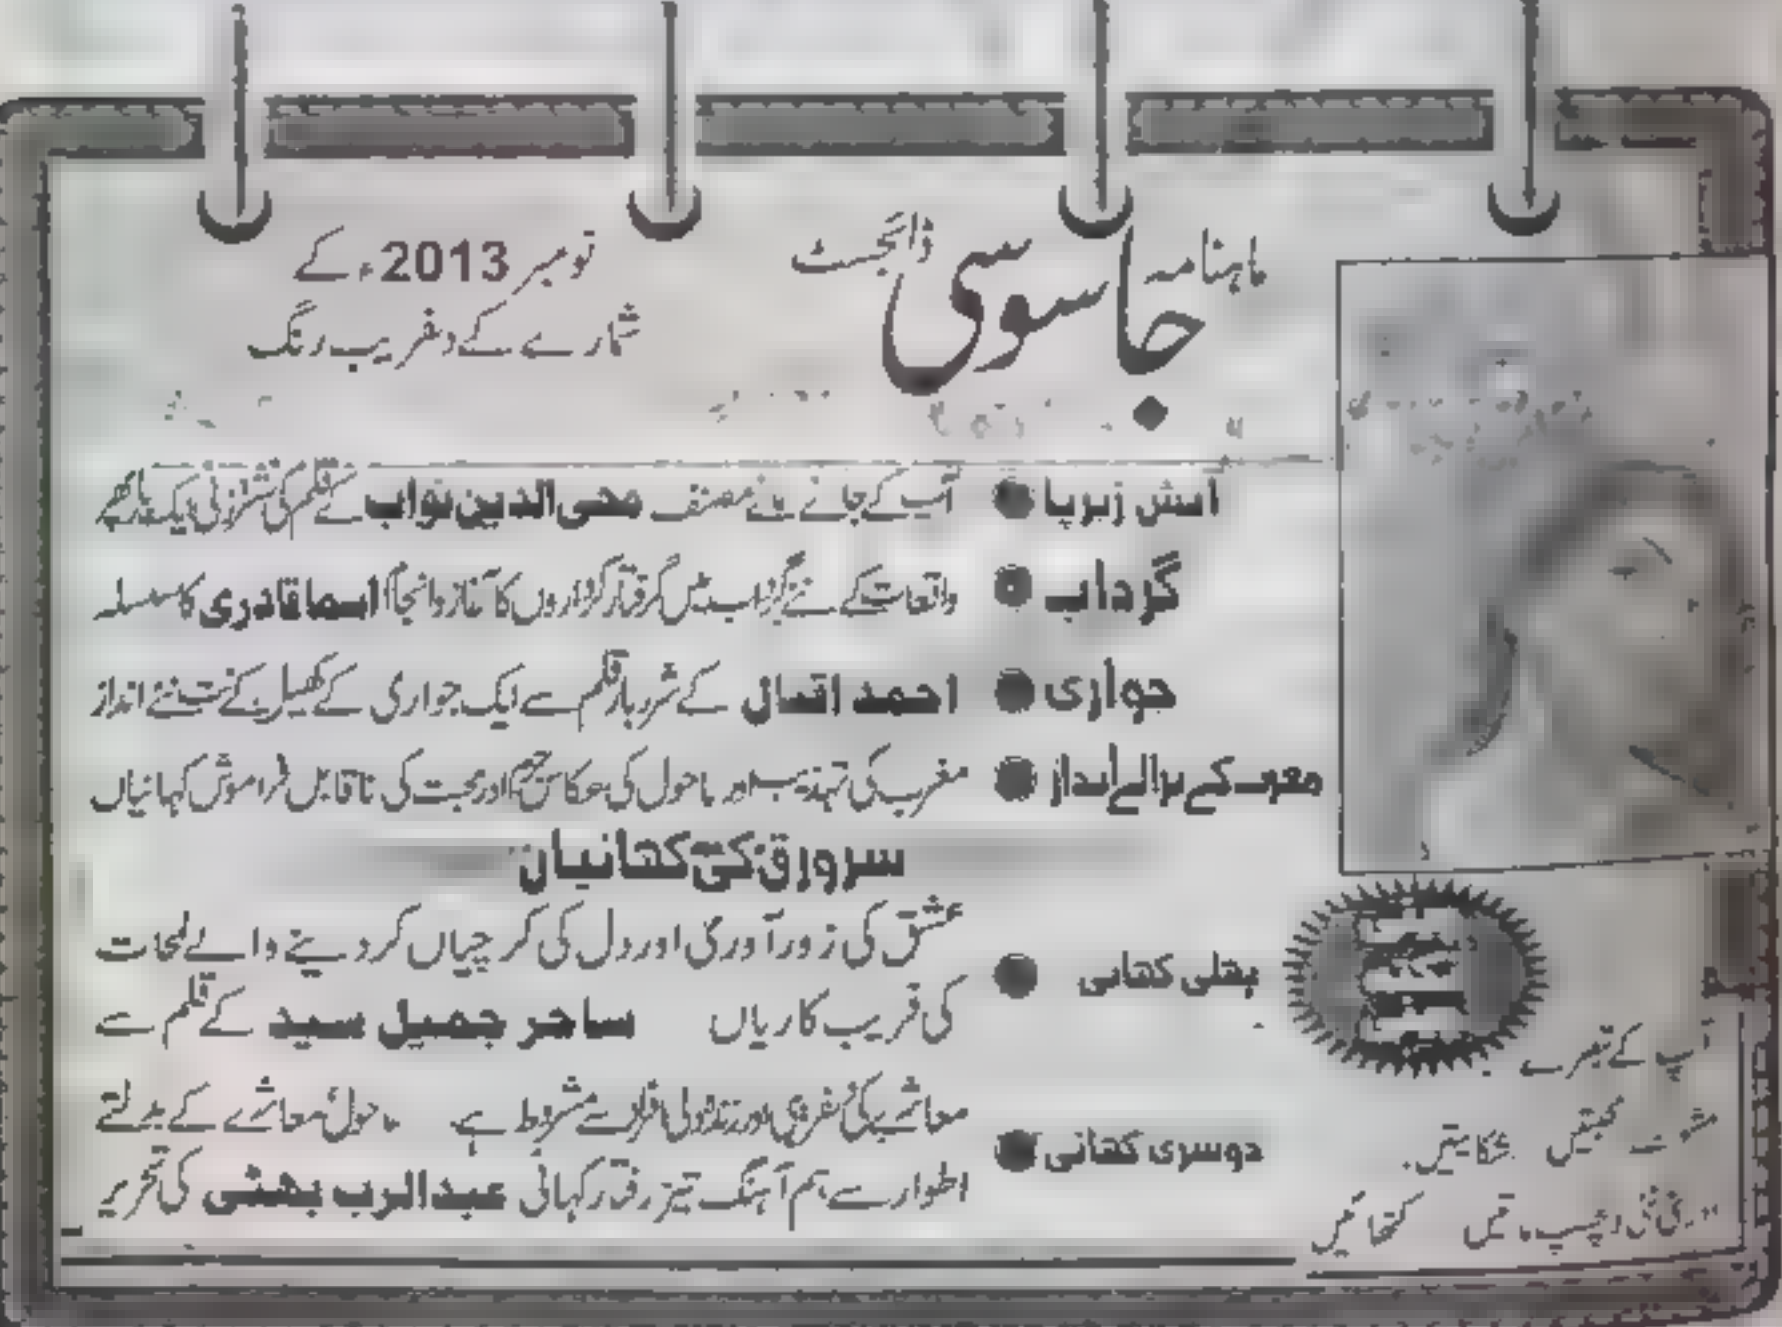 ماہنامہ جاسوسی ڈائجسٹ
نومبر 2013ء کے
شمارے کے دلفریب رنگ
آتش زیرپا ● آپ کے جانے مانے مصنف محی الدین نواب کے قلم کی نشتر زنی ایک بار پھر
گرداب ● واقعات کے نئے گرداب میں گرفتار کرداروں کا آغاز و انجام اسما قادری کا سلسلہ
جواری ● احمد اقبال کے شرر بار قلم سے ایک جواری کے کھیل کے نت نئے انداز
مغرب کے نرالے انداز ● مغرب کی تہذیب اور ماحول کی عکاس جرم اور محبت کی ناقابل فراموش کہانیاں
سرورق کی کہانیاں
پہلی کہانی ● عشق کی زور آوری اور دل کی کرچیاں کر دینے والے لمحات
کی فریب کاریاں ساحر جمیل سید کے قلم سے
دوسری کہانی ● معاشرے کی اور زندہ دلی افراد سے مشروط ہے ماحول معاشرے کے بدلتے
اطوار سے ہم آہنگ تیز رفتار کہانی عبدالرب بھٹی کی تحریر
آپ کے تبصرے
مشورے محبتیں شکایتیں
نئی نئی دلچسپ باتیں کتھائیں